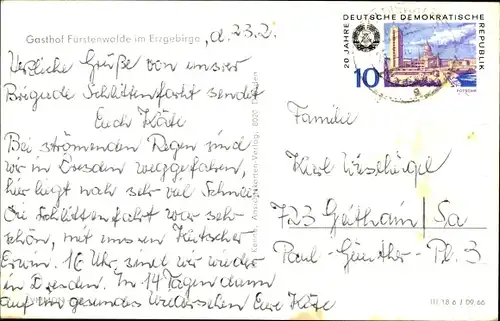 Gasthof Fürstenwalde im Erzgebirge, d. 23.2.
Herzliche Grüße von unsrer
Brigade Schlittenfahrt sendet
Euch Käte
Bei strömenden Regen sind
wir in Dresden weggefahren,
hier liegt noch sehr viel Schnee.
Die Schlittenfahrt war sehr
schön, mit unseren Kutscher
Erwin. 16 Uhr sind wir wieder
in Dresden. In 14 Tagen dann
auf ein gesundes Wiedersehen Eure Käte
20 JAHRE DEUTSCHE DEMOKRATISCHE REPUBLIK
10
POTSDAM
Familie
Karl
723 Geithain / Sa
Paul-Günther-Pl. 3
III 18 6 / 09 66